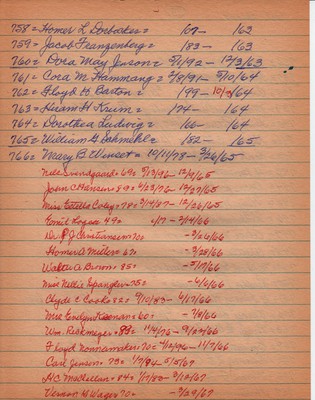 758 = Homer L Dorbacker = 1867 - 1962
759 = Jacob Franzenberg = 1883 - 163
760 = Dora May Jenson = 5/1/92 - 12/3/63
761 = Cora M Hammang = 2/8/91 - 5/10/64
762 = Floyd H Barton = 1899 - 10/2/64
763 = Hiram H Krum = 174 - 164
764 = Dorothea Ludwig = 166 - 164
765 = William G Schmehl = 182 - 165
766 = Mary B. Wenset = 10/11/78 - 3/26/65
Nels Svendgaard = 69 = 9/13/96 - 12/9/65
John C Hansen = 89 = 4/23/76 - 12/27/65
Miss Estella Coley = 78 = 2/14/87 - 12/26/65
Emil Rogge 49 = 6/17 - 2/14/66
Dr. P J Christiansen = 70 = - 3/26/66
Homer A Miller = 67 = - 3/28/66
Walter A Brown = 85 = - 5/17/66
Miss Nellie Spangler = 75 = - 6/6/66
Clyde C Cooke = 82 = 9/10/83 - 6/17/66
Mrs Evelyn Keenan = 60 = - 7/8/66
Wm. Rickmeyer = 89 = 11/4/76 - 9/23/66
Floyd Nonnamaker = 70 = 2/12/96 - 11/7/66
Carl Jensen = 73 = 1/7/94 - 5/5/67
A.C. MacLellan = 84 = 1/17/83 - 8/12/67
Vernon H Wager = 70 = - 9/29/67